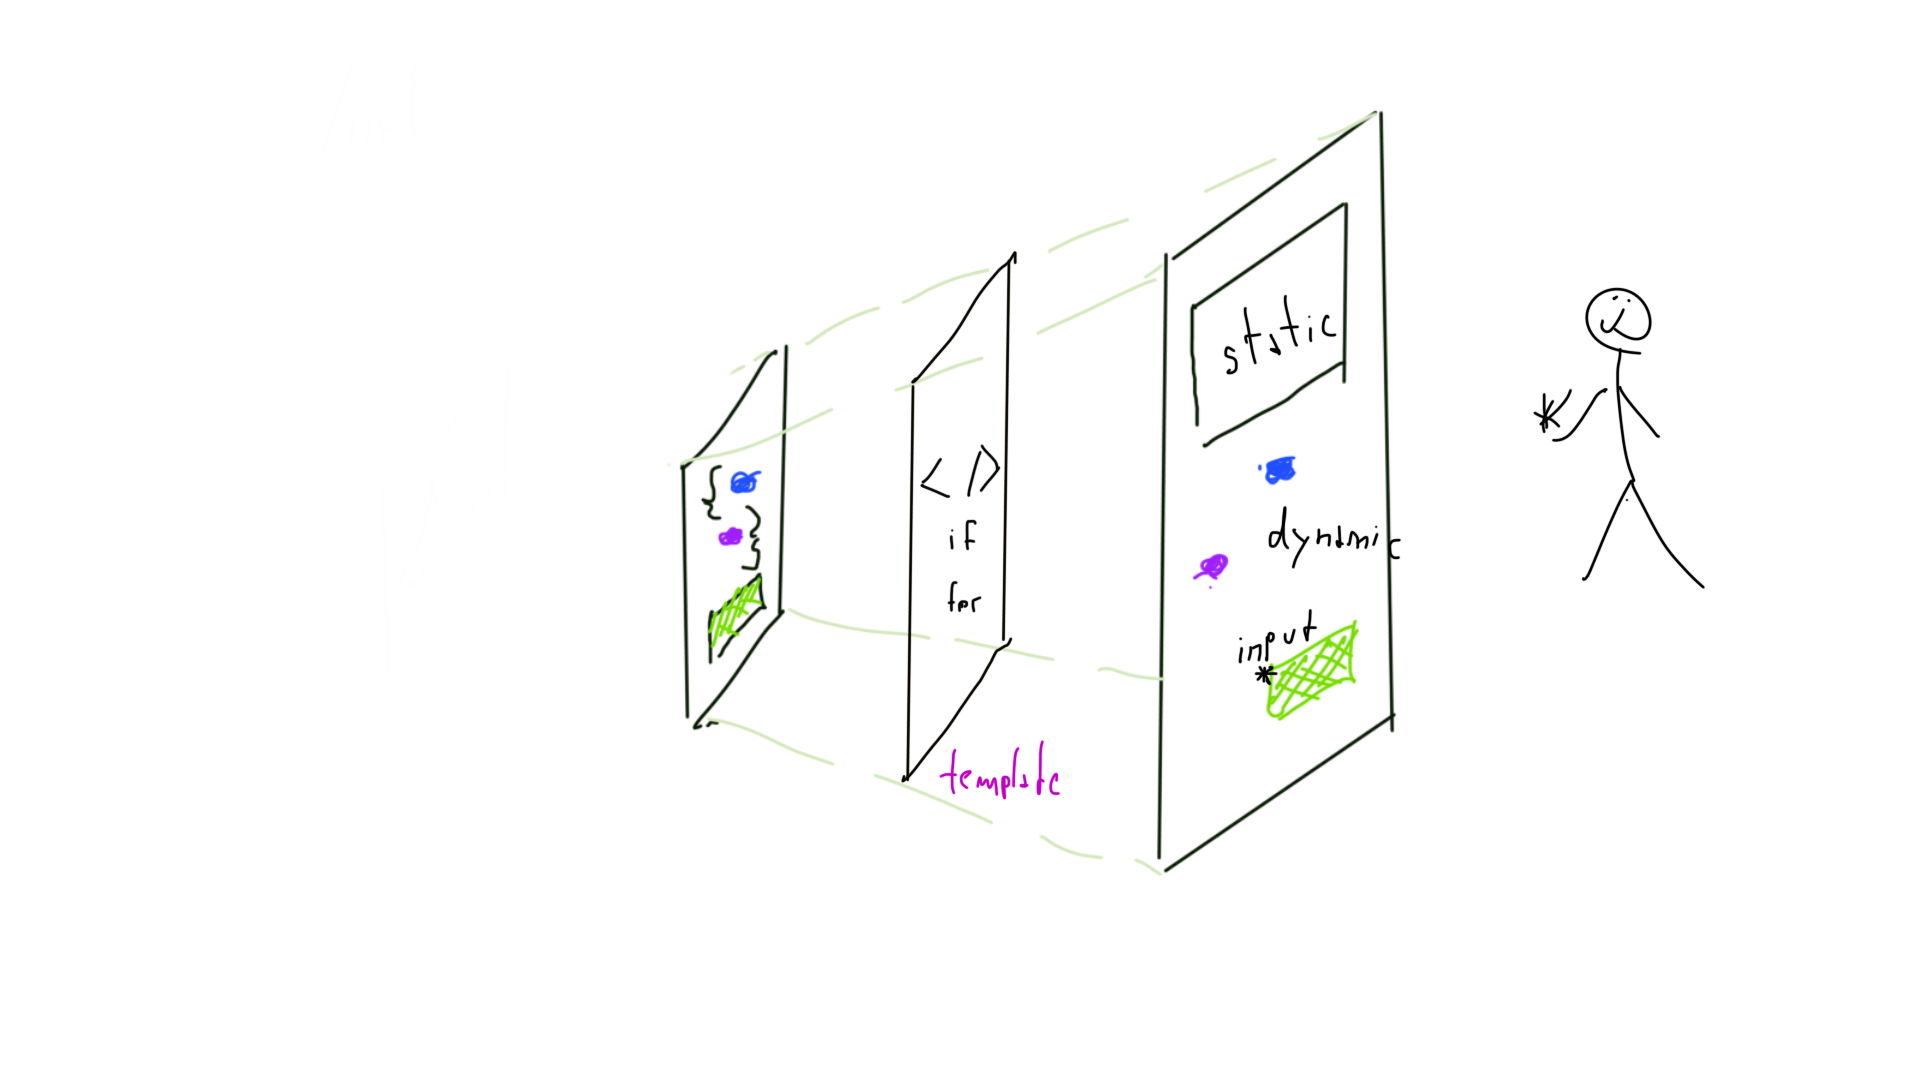 {
}
< />
if
for
template
static
dynamic
input
*
*